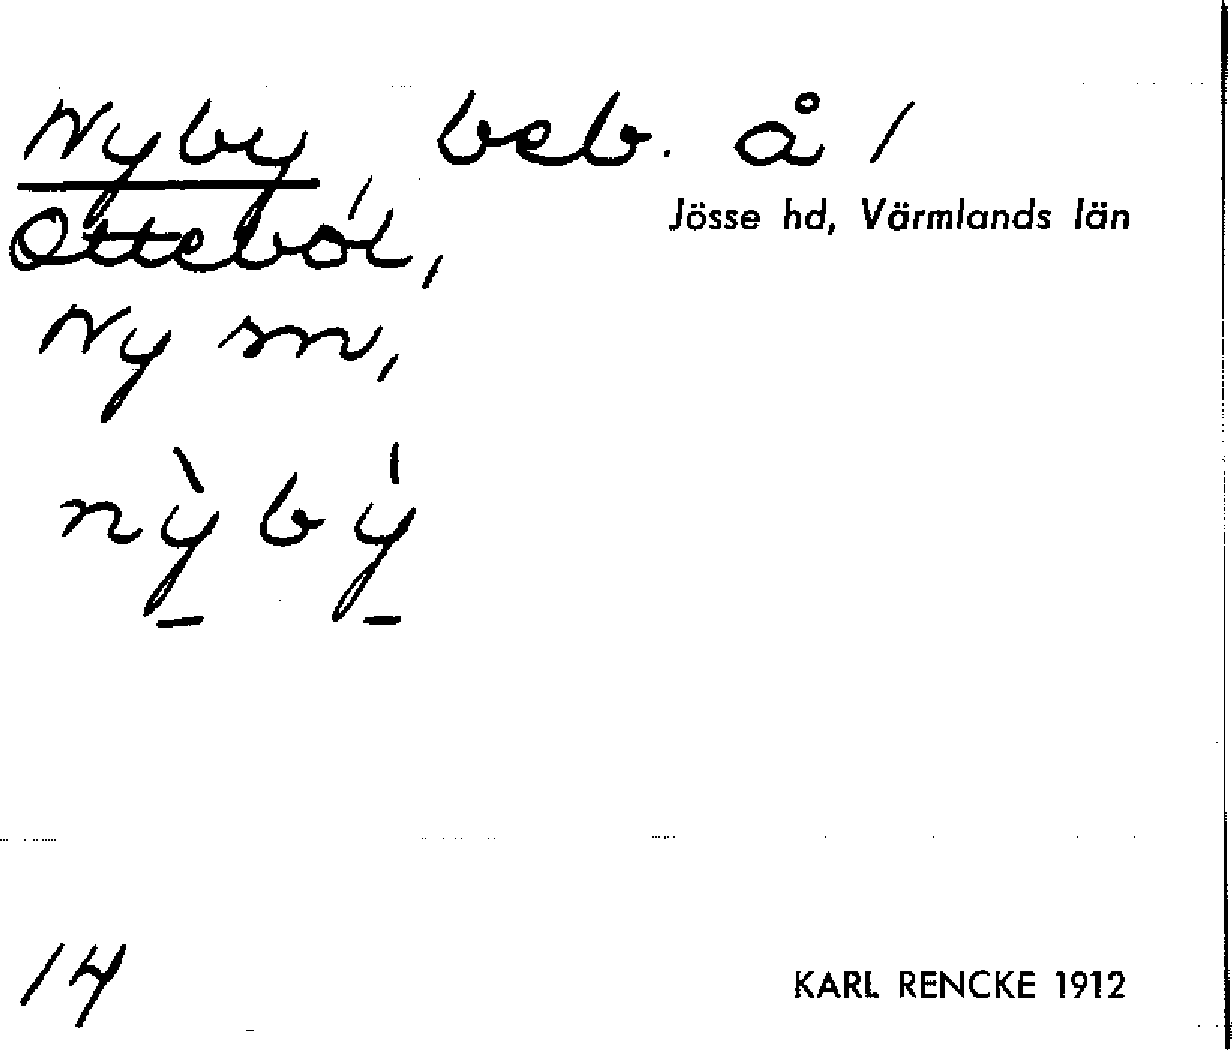 Nyby, beb. å /
Jösse hd, Värmlands län
Otteból,
Ny sn,
nỳbý
14
KARL RENCKE 1912